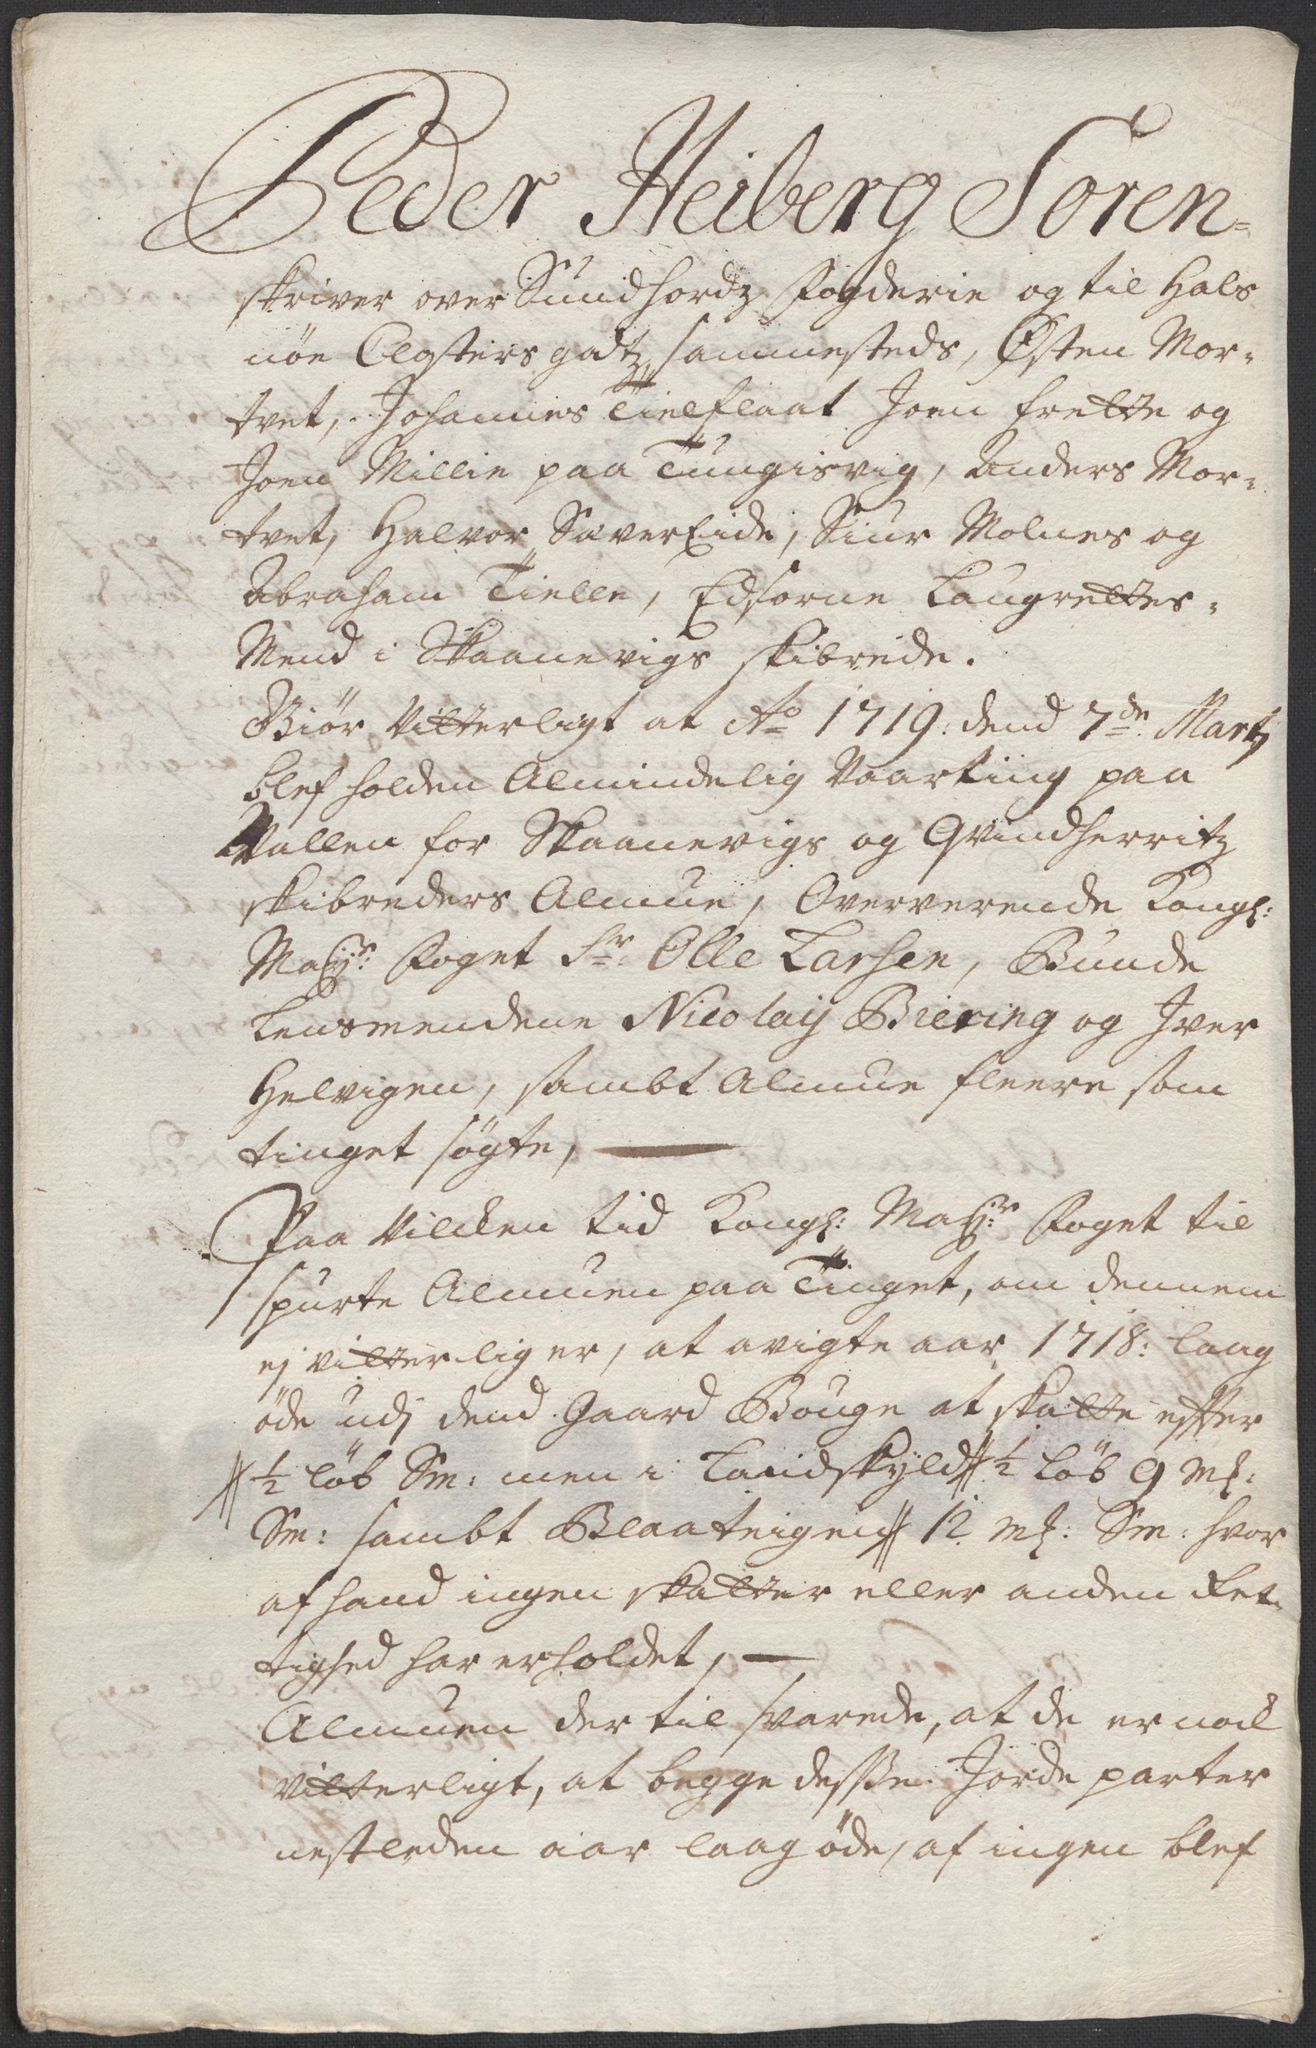 Peder Heiberg Soren-
skriver over Sundhordz fogderie og til Hals
nöe Closters godtz sammesteds, Østen Mor-
tvet, Johannes Tielflaat Joen Frette og
Joen Millie paa Tungisvig, Anders Mor-
tvet, Halvor SæverEide, Siur Molnes og
Abraham Tielle, Edsorne Laugrettes-
Mend i Skaanevigs skibrede.
Giör Vitterligt at Ao 1719: dend 7de Martj
blef holden Almindelig Vaarting paa
Vallen for Skaanevigs og Qvindherritz
skibreders Almue, Oververende Kongl:
Maijts: foget Sr. Olle Larsen, Bunde
Lensmendene Nicolaij Biering og Iver
Helvigen, sambt Almue fleere som
tinget sögte,
Paa Vilcken tid Kongl: Maijts: foget til
spurte Almuen paa Tinget, om dennem
ej vitterlig er, at avigte aar 1718: laag
öde udj dend gaard Bouge at skatte efter
1/2 löb Sm: men i Landskyld 1/2 Löb 9 mk:
Sm: sambt Blaateigen 12 mk: Sm: hvor
af hand ingen skatter eller anden Ret-
tighed har erholdet,
Almuen der til svarede, at de er nock
vitterligt, at begge desse Jorde parter
nestleden aar laag öde, af ingen blef